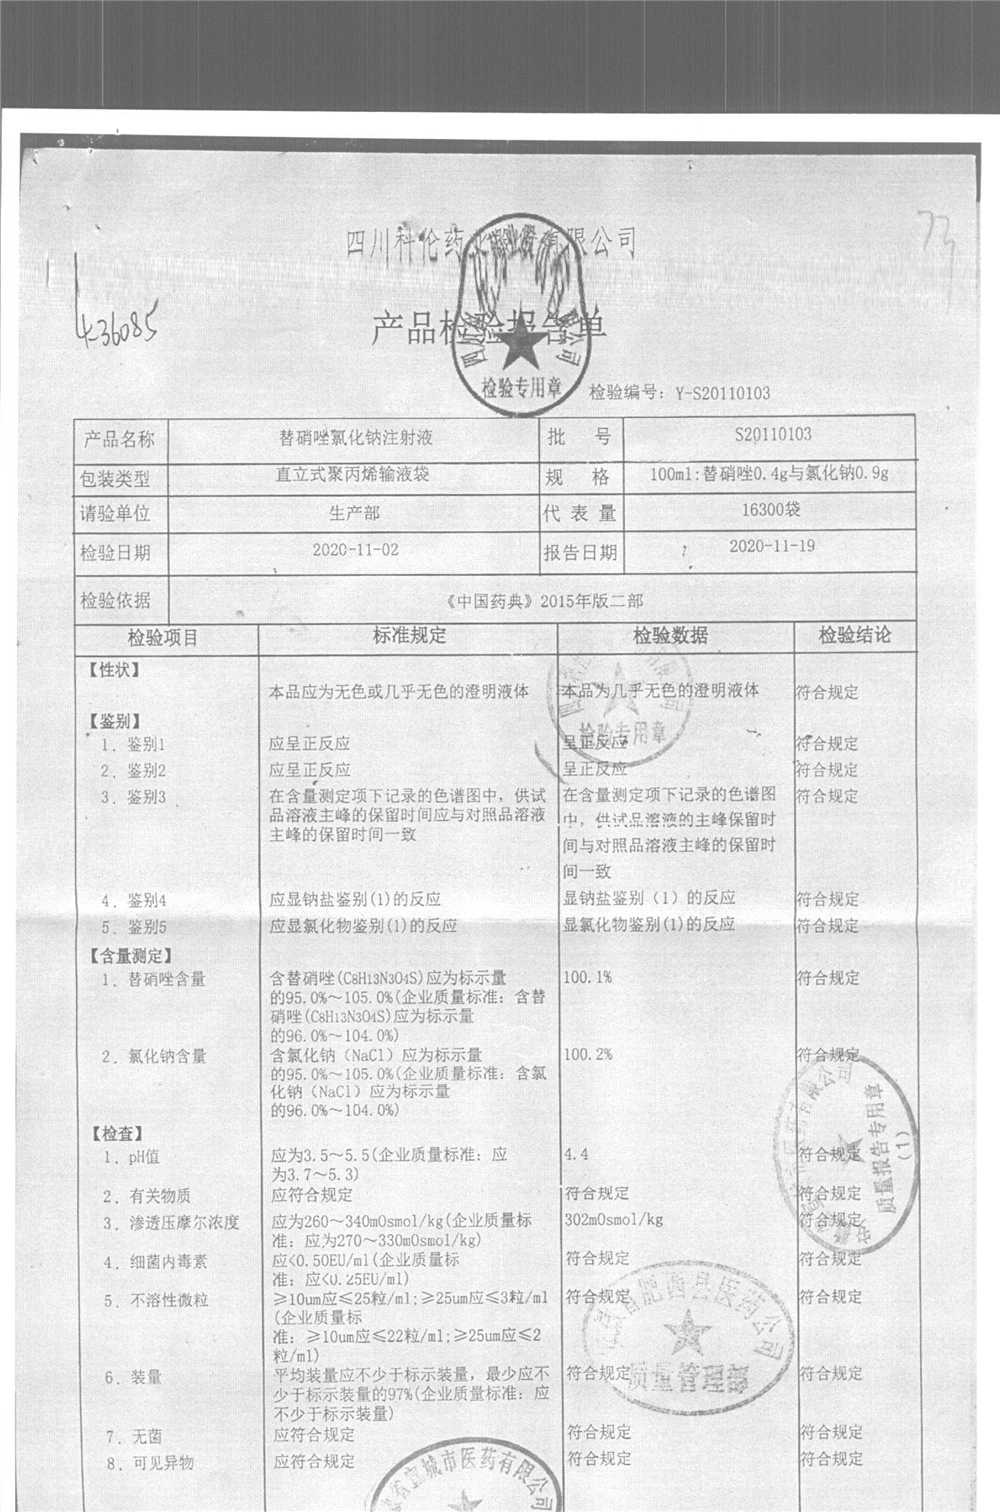 四川科伦药业股份有限公司
436085
73
产品检验报告单
检验专用章
检验编号: Y-S20110103
产品名称 替硝唑氯化钠注射液 批 号 S20110103
包装类型 直立式聚丙烯输液袋 规 格 100ml:替硝唑0.4g与氯化钠0.9g
请验单位 生产部 代 表 量 16300袋
检验日期 2020-11-02 报告日期 2020-11-19
检验依据 《中国药典》2015年版二部
检验项目 标准规定 检验数据 检验结论
【性状】
本品应为无色或几乎无色的澄明液体 本品为几乎无色的澄明液体 符合规定
检验专用章
【鉴别】
1. 鉴别1 应呈正反应 呈正反应 符合规定
2. 鉴别2 应呈正反应 呈正反应 符合规定
3. 鉴别3 在含量测定项下记录的色谱图中,供试 在含量测定项下记录的色谱图 符合规定
品溶液主峰的保留时间应与对照品溶液 中,供试品溶液的主峰保留时
主峰的保留时间一致 间与对照品溶液主峰的保留时
间一致
4. 鉴别4 应显钠盐鉴别(1)的反应 显钠盐鉴别(1)的反应 符合规定
5. 鉴别5 应显氯化物鉴别(1)的反应 显氯化物鉴别(1)的反应 符合规定
【含量测定】
1. 替硝唑含量 含替硝唑(C8H13N3O4S)应为标示量 100.1% 符合规定
的95.0%~105.0%(企业质量标准: 含替
硝唑(C8H13N3O4S)应为标示量
的96.0%~104.0%)
2. 氯化钠含量 含氯化钠(NaCl)应为标示量 100.2% 符合规定
的95.0%~105.0%(企业质量标准: 含氯
化钠(NaCl)应为标示量
的96.0%~104.0%)
【检查】
1. pH值 应为3.5~5.5(企业质量标准: 应 4.4 符合规定
为3.7~5.3)
2. 有关物质 应符合规定 符合规定 符合规定
3. 渗透压摩尔浓度 应为260~340mOsmol/kg(企业质量标 302mOsmol/kg 符合规定
准: 应为270~330mOsmol/kg)
质量报告专用章
(1)
4. 细菌内毒素 应<0.50EU/ml(企业质量标 符合规定 符合规定
准: 应<0.25EU/ml)
5. 不溶性微粒 ≥10um应≤25粒/ml;≥25um应≤3粒/ml 符合规定 符合规定
(企业质量标
准: ≥10um应≤22粒/ml;≥25um应≤2
粒/ml)
安徽省肥西县医药公司
质量管理部
6. 装量 平均装量应不少于标示装量, 最少应不 符合规定 符合规定
少于标示装量的97%(企业质量标准: 应
不少于标示装量)
7. 无菌 应符合规定 符合规定 符合规定
8. 可见异物 应符合规定 符合规定 符合规定